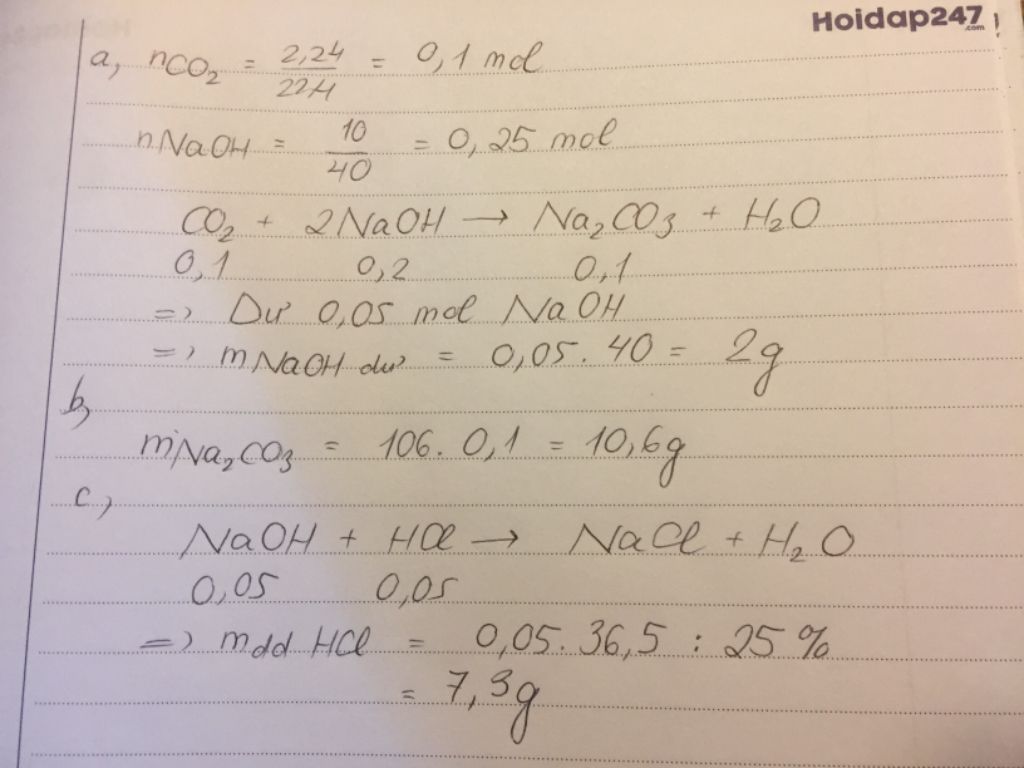 Hoidap247.com
a, nCO₂ = 2,24/22,4 = 0,1 mol
nNaOH = 10/40 = 0,25 mol
CO₂ + 2NaOH → Na₂CO₃ + H₂O
0,1 0,2 0,1
=> Dư 0,05 mol NaOH
=> mNaOH dư = 0,05. 40 = 2g
b,
mNa₂CO₃ = 106. 0,1 = 10,6g
c,
NaOH + HCl → NaCl + H₂O
0,05 0,05
=> mdd HCl = 0,05. 36,5 : 25%
= 7,3g